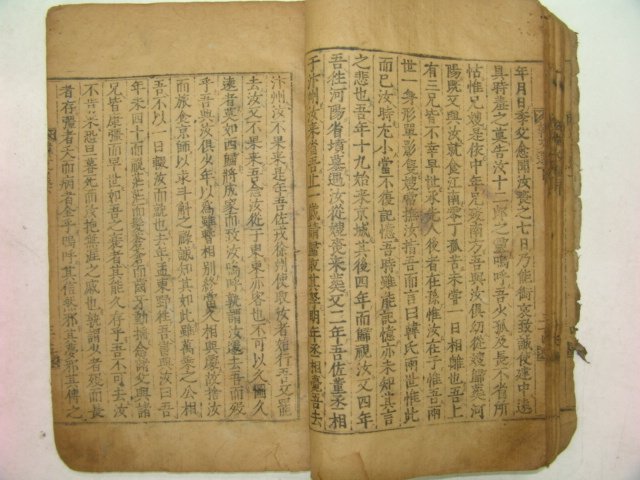 年月日季父愈聞汝喪之七日乃能銜哀致誠使建中遠
具時羞之奠告汝十二郎之靈嗚呼吾少孤及長不省所
怙惟兄嫂是依中年兄歿南方吾與汝俱幼從嫂歸葬河
陽旣又與汝就食江南零丁孤苦未嘗一日相離也吾上
有三兄皆不幸早世承先人後者在孫惟汝在子惟吾兩
世一身形單影隻嫂嘗撫汝指吾而言曰韓氏兩世惟此
而已汝時尤小當不復記憶吾時雖能記憶亦未知其言
之悲也吾年十九始來京城其後四年而歸視汝又四年
吾往河陽省墳墓遇汝從嫂喪來葬又二年吾佐董丞相
于汴州汝來省吾止一歲請歸取其孥明年丞相薨吾去
汴州汝不果來是年吾佐戎徐州使取汝者始行吾又罷
去汝又不果來吾念汝從于東東亦客也不可以久圖久
遠者莫如西歸將成家而致汝嗚呼孰謂汝遽去吾而歿
乎吾與汝俱少年以爲雖暫相別終當久相與處故捨汝
而旅食京師以求斗斛之祿誠知其如此雖萬乘之公相
吾不以一日輟汝而就也去年孟東野往吾書與汝曰吾
年未四十而視茫茫而髮蒼蒼而齒牙動搖念諸父與諸
兄皆康彊而早世如吾之衰者其能久存乎吾不可去汝
不肯來恐旦暮死而汝抱無涯之戚也孰謂少者歿而長
者存彊者夭而病者全乎嗚呼其信然邪其夢邪其傳之